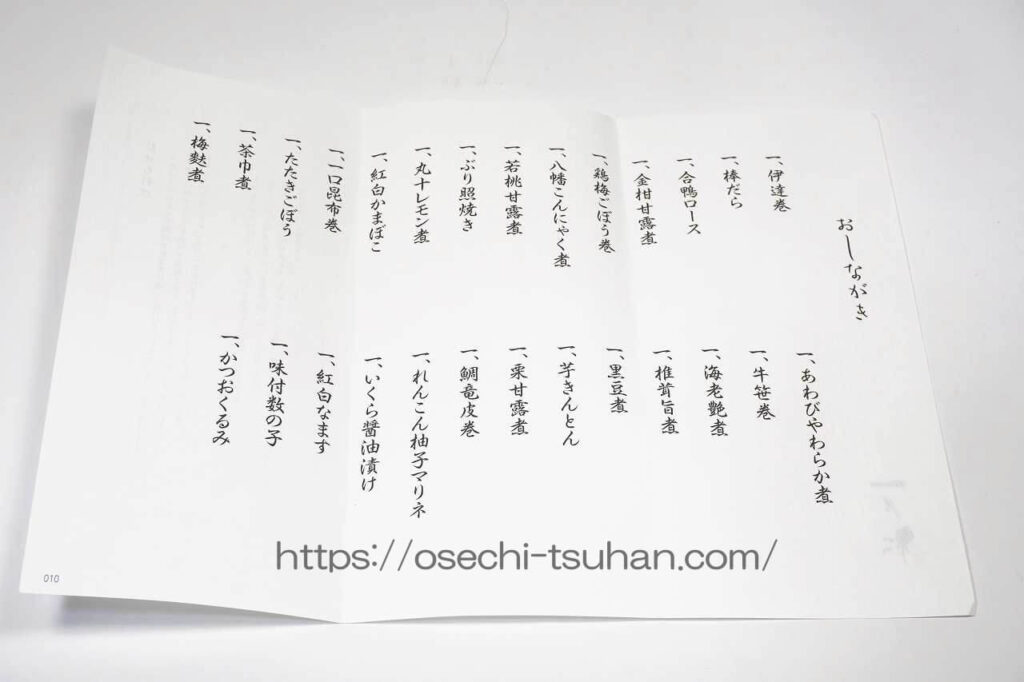 おしながき
一、伊達巻
一、棒だら
一、合鴨ロース
一、金柑甘露煮
一、鶏梅ごぼう巻
一、八幡こんにゃく煮
一、若桃甘露煮
一、ぶり照焼き
一、丸十レモン煮
一、紅白かまぼこ
一、一口昆布巻
一、たたきごぼう
一、茶巾煮
一、梅麩煮
一、あわびやわらか煮
一、牛笹巻
一、海老艶煮
一、椎茸旨煮
一、黒豆煮
一、芋きんとん
一、栗甘露煮
一、鯛竜皮巻
一、れんこん柚子マリネ
一、いくら醤油漬け
一、紅白なます
一、味付数の子
一、かつおくるみ
010
https://osechi-tsuhan.com/